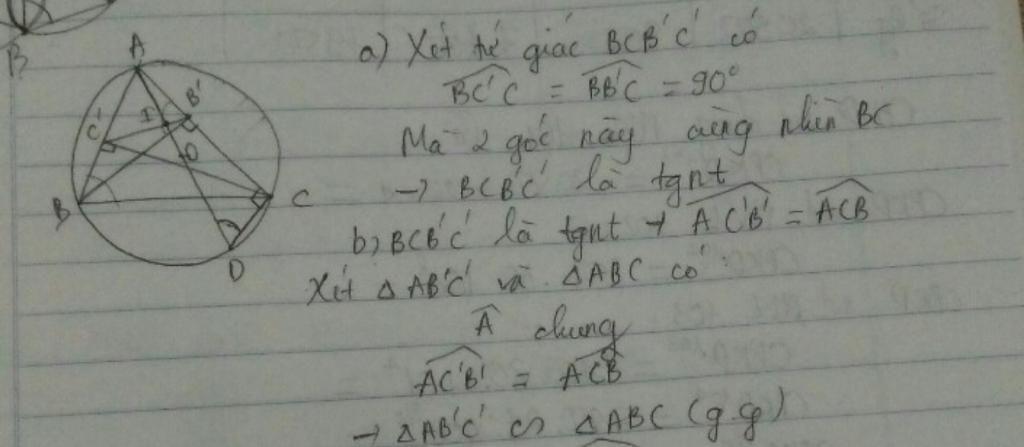 B
A
B'
C'
I
O
B
C
D
a) Xét tứ giác BCB'C' có
BC'C = BB'C = 90°
Mà 2 góc này cùng nhìn BC
→ BCB'C' là tgnt
b) BCB'C' là tgnt → AC'B' = ACB
Xét △AB'C' và △ABC có:
A chung
AC'B' = ACB
→ △AB'C' ∽ △ABC (g.g)